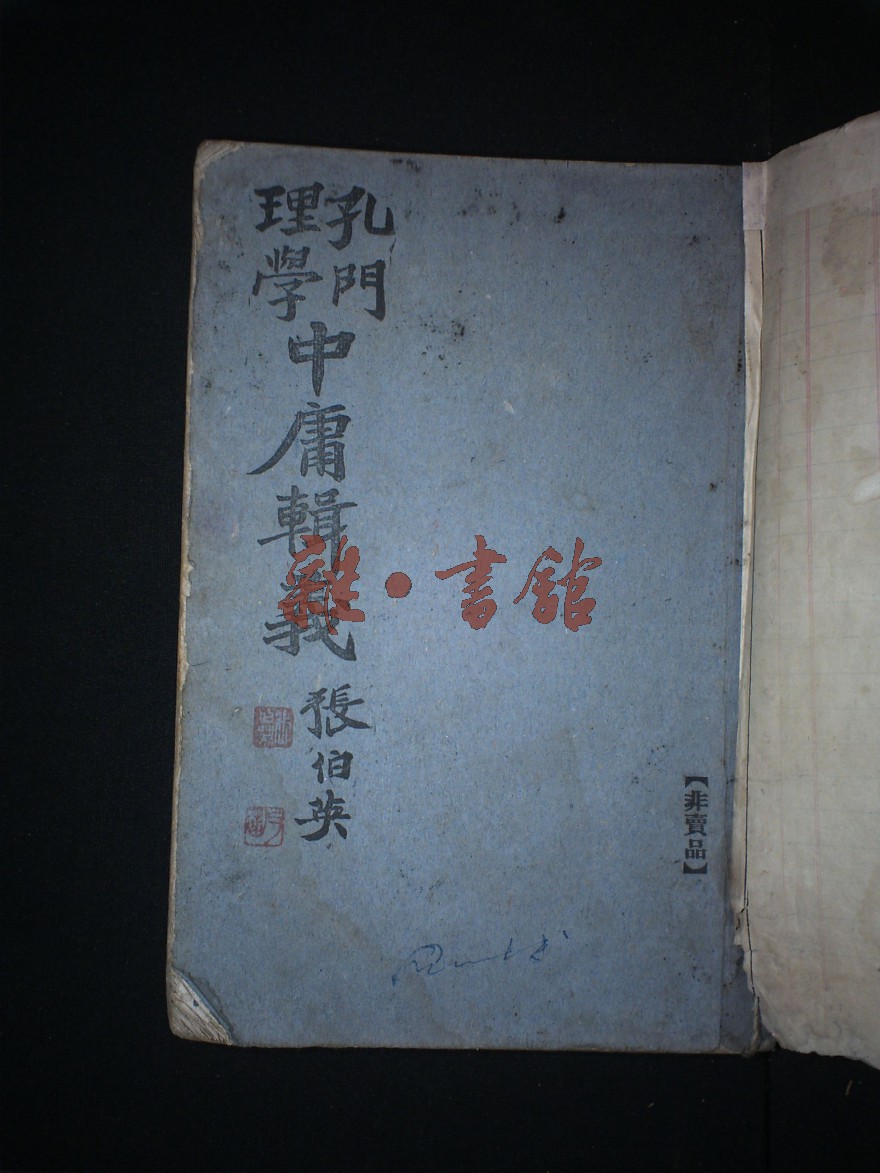 孔門
理學
中庸輯義
張伯英
【非賣品】
雜·書館